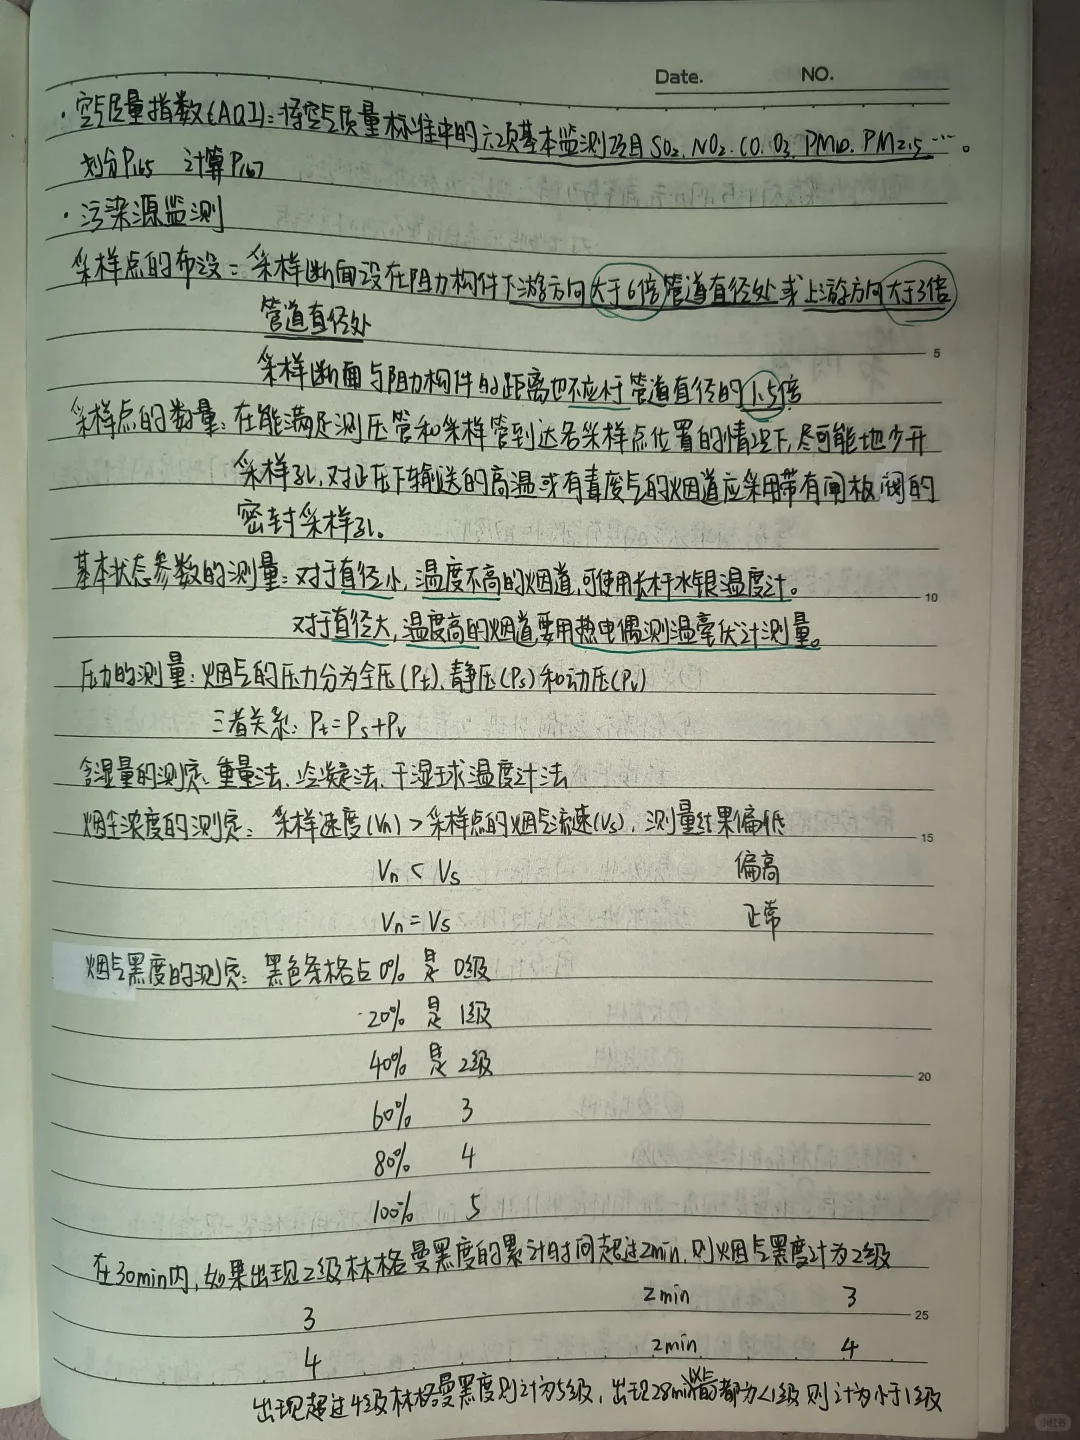 Date. NO.
·空气质量指数(AQI):将空气质量标准中的六项基本监测项目SO₂、NO₂、CO、O₃、PM₁₀、PM₂.₅…。
划分P₁₆₅ 计算P₁₆₇
·污染源监测
采样点的布设:采样断面设在阻力构件下游方向大于6倍管道直径处或上游方向大于3倍
管道直径处
5
采样断面与阻力构件的距离也不应小于管道直径的1.5倍
采样点的数量:在能满足测压管和采样管到达各采样点位置的情况下,尽可能地少开
采样孔,对正压下输送的高温或有毒废气的烟道应采用带有闸板阀的
密封采样孔。
基本状态参数的测量:对于直径小,温度不高的烟道,可使用长杆水银温度计。
10
对于直径大,温度高的烟道要用热电偶测温毫伏计测量。
压力的测量:烟气的压力分为全压(Pt)、静压(Ps)和动压(Pv)
三者关系:Pt=Ps+Pv
含湿量的测定:重量法、冷凝法、干湿球温度计法
烟尘浓度的测定:采样速度(Vn)>采样点的烟气流速(Vs),测量结果偏低
15
Vn < Vs 偏高
Vn = Vs 正常
烟气黑度的测定:黑色条格占0% 是 0级
20% 是 1级
40% 是 2级
20
60% 3
80% 4
100% 5
在30min内,如果出现2级林格曼黑度的累计时间超过2min,则烟气黑度计为2级
3 2min 3
25
4 2min 4
出现超过4级林格曼黑度则计为5级,出现28min以上都为<1级则计为小于1级
小红书